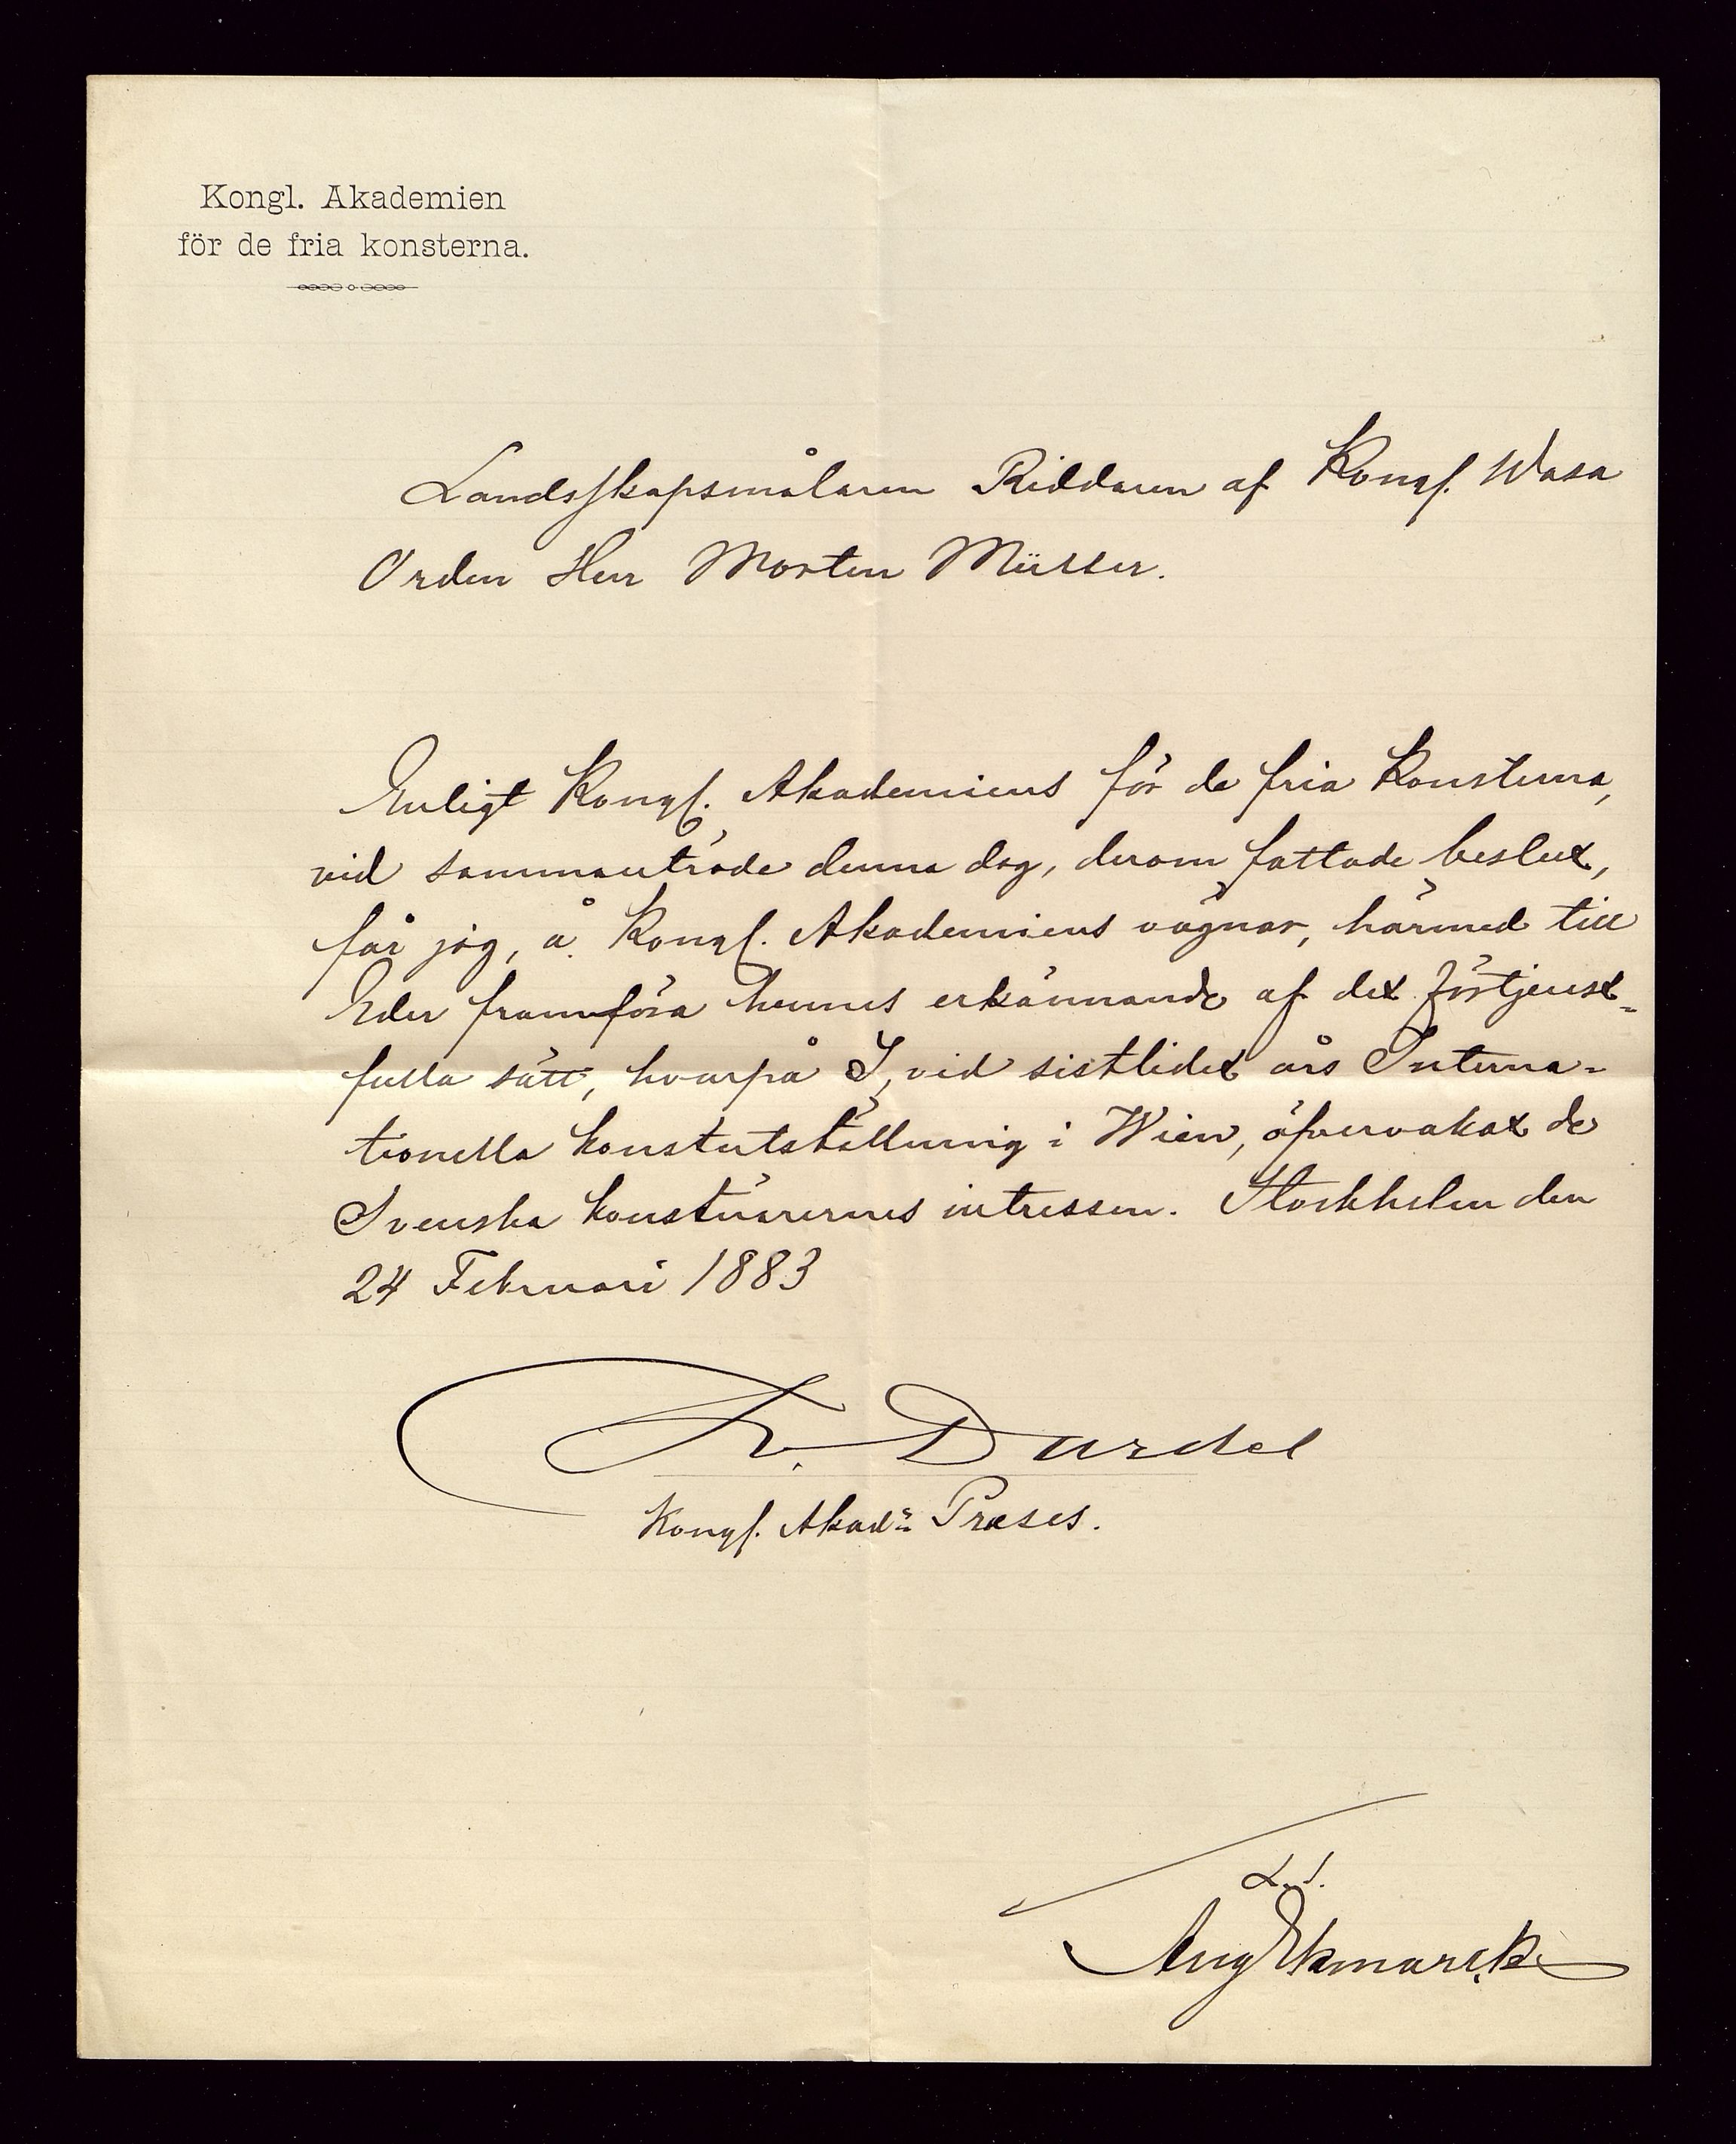 Kongl. Akademien
för de fria konsterna.
Landsskapsmålaren Riddaren af Kongl. Wasa
Orden Herr Morten Müller.
Enligt Kongl. Akademiens för de fria Konsterna,
vid sammanträde denna dag, derom fattade beslut,
får jag, å Kongl. Akademiens vägnar, härmed till
Eder framföra hennes erkännande af det förtjenst-
fulla sätt, hvarpå I, vid sistlidet års Interna-
tionella konstutställning i Wien, öfvervakat de
Svenska konstnärernes intressen. Stockholm den
24 Februari 1883
Fr. Dardel
Kongl. Akad:s Præses.
L. S.
Aug Ekmarck